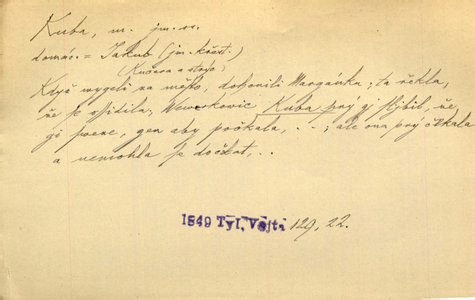 Kuba, m. jm. os.
domác. = Jakub (jm. křest.)
(Kučera a strojo)
Když vygeli na město, dohonili Margánku; ta řekla,
že p Wewerkovic Kuba prý gi slíbil, že
gi sweze, gen aby počkala, ..; ale ona prý čekala
a nemohla se dočkat, ..
1849 Tyl, Vojta 129, 22.